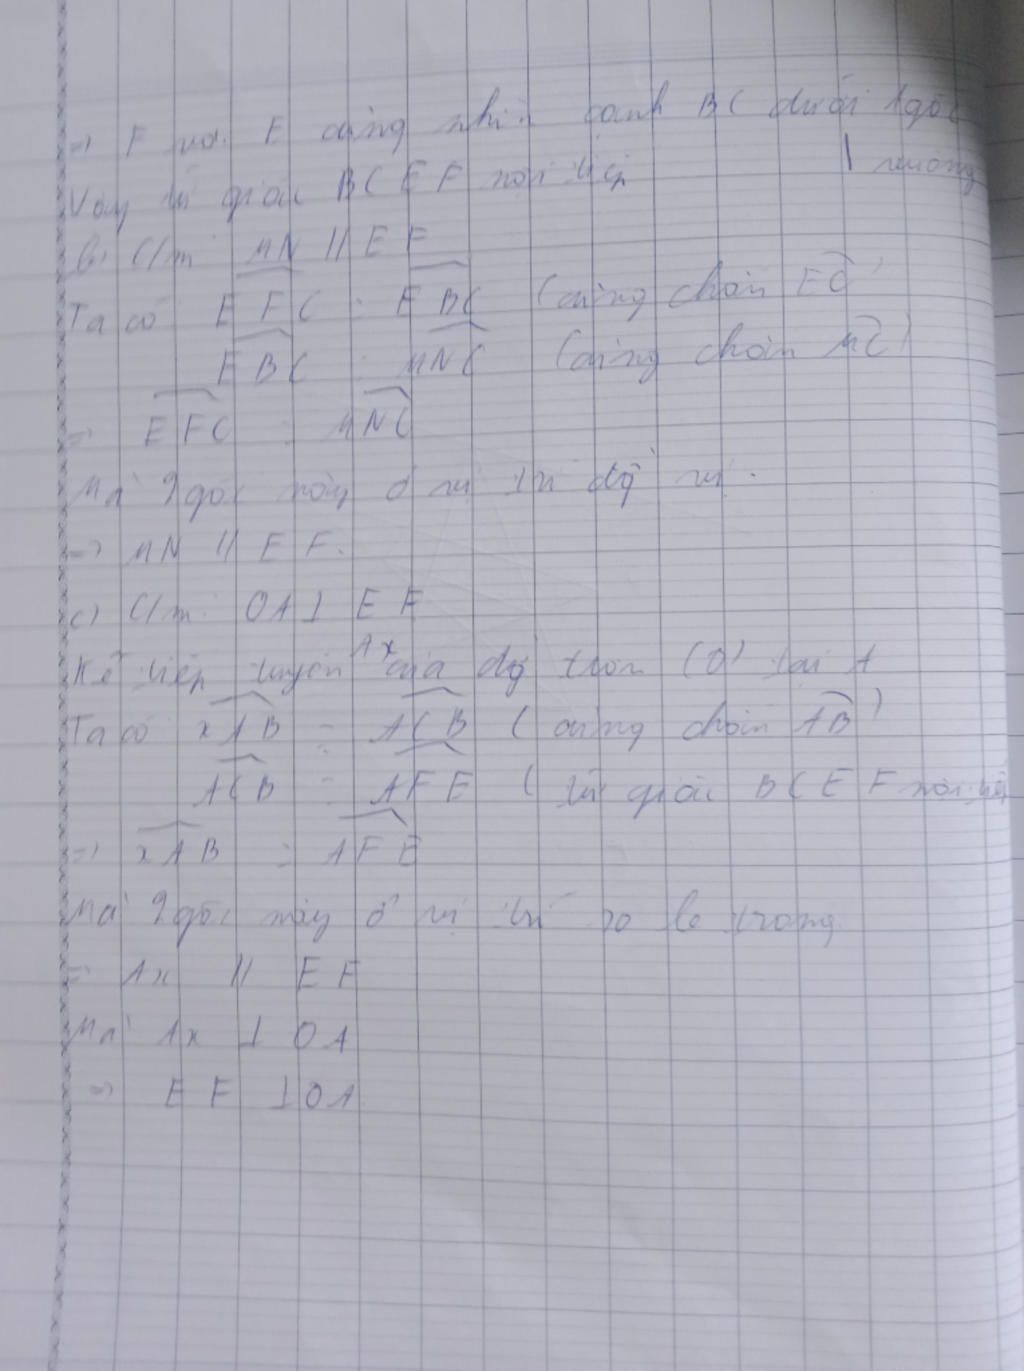 => F và E cùng nhìn cạnh BC dưới 1 góc
vuông
Vậy tứ giác BCEF nội tiếp
b) C/m MN // EF
Ta có EFC = EBC (cùng chắn EC)
EBC = MNC (cùng chắn MC)
=> EFC = MNC
Mà 2 góc này ở vị trí đồng vị.
=> MN // EF.
c) C/m: OA ⊥ EF
Kẻ tiếp tuyến Ax của đg tròn (O) tại A
Ta có xAB = ACB (cùng chắn AB)
ACB = AFE (tứ giác BCEF nội tiếp
=> xAB = AFE
Mà 2 góc này ở vị trí so le trong
=> Ax // EF
Mà Ax ⊥ OA
=> EF ⊥ OA